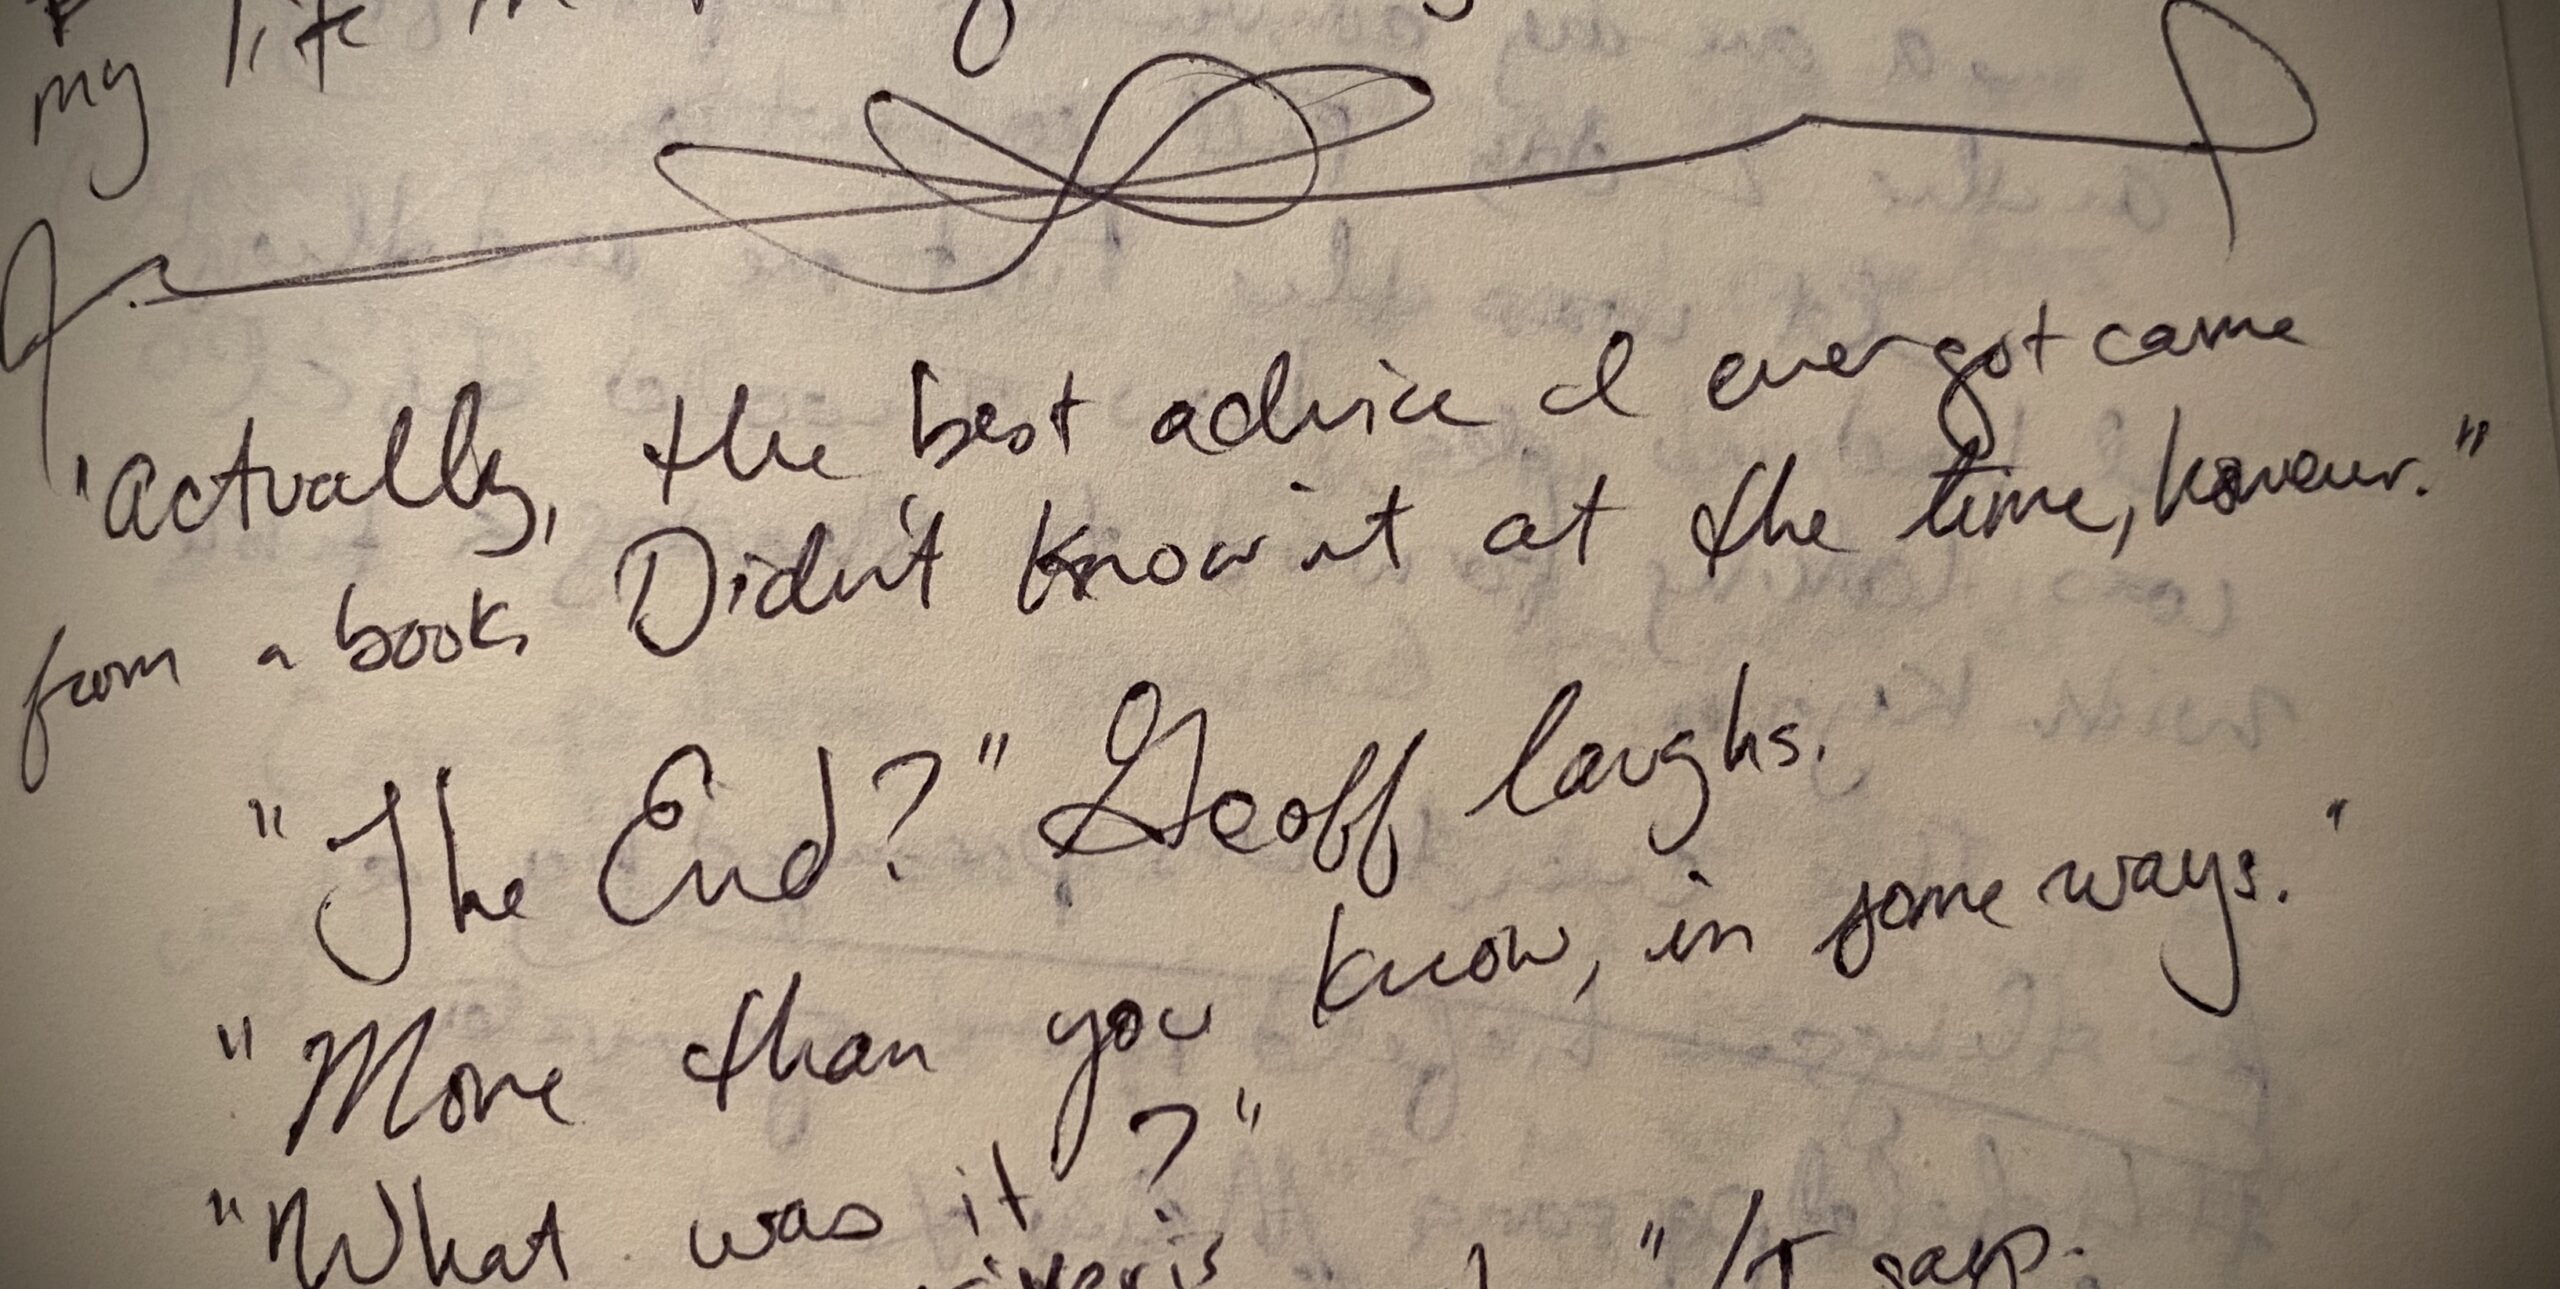 my life in
"Actually, the best advice I ever got came
from a book. Didn't know it at the time, however."
"The End?" Geoff laughs.
"More than you know, in some ways."
"What was it?"
" says.